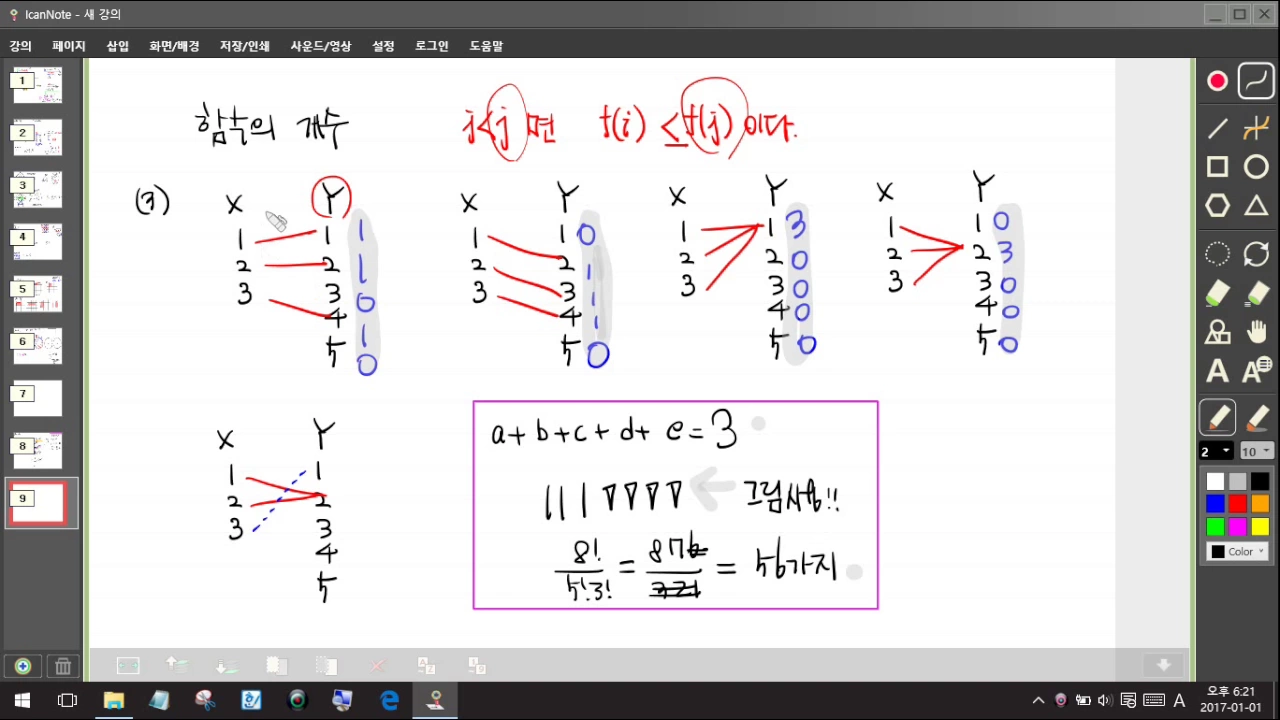 IcanNote - 새 강의
강의 페이지 삽입 화면/배경 저장/인쇄 사운드/영상 설정 로그인 도움말
1
2
3
4
5
6
7
8
9
함수의 개수 i<j 면 f(i) ≤ f(j) 이다.
(3)
X Y
1 1 1
2 2 1
3 3 0
4 1
5 0
X Y
1 1 0
2 2 1
3 3 1
4 1
5 0
X Y
1 1 3
2 2 0
3 3 0
4 0
5 0
X Y
1 1 0
2 2 3
3 3 0
4 0
5 0
X Y
1 1
2 2
3 3
4
5
a+b+c+d+e=3
| | | ∇ ∇ ∇ ∇ 그림사용!!
8!/5!3! = 876/321 = 56가지
2 10
Color
A
오후 6:21
2017-01-01